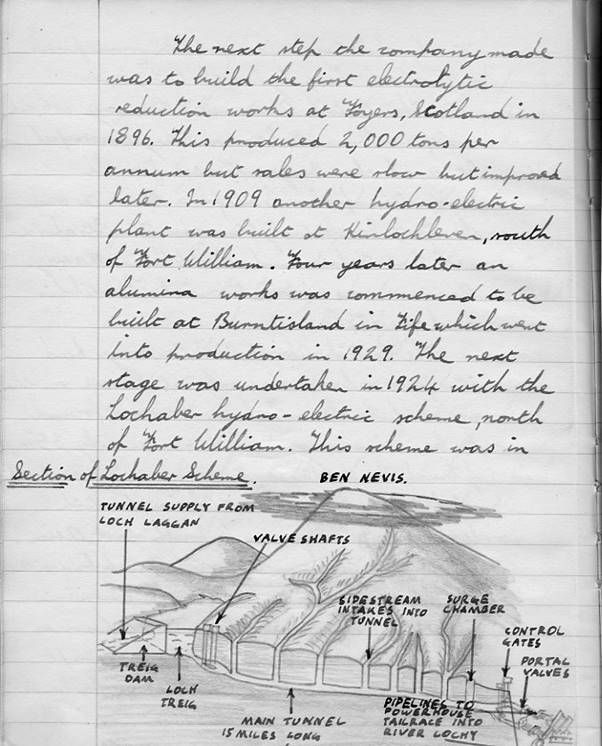 The next step the company made
was to build the first electrolytic
reduction works at Foyers, Scotland in
1896. This produced 2,000 tons per
annum but sales were slow but improved
later. In 1909 another hydro-electric
plant was built at Kinlochleven, south
of Fort William. Four years later an
alumina works was commenced to be
built at Burntisland in Fife which went
into production in 1929. The next
stage was undertaken in 1924 with the
Lochaber hydro-electric scheme, north
of Fort William. This scheme was in
Section of Lochaber Scheme.
BEN NEVIS.
TUNNEL SUPPLY FROM
LOCH LAGGAN
VALVE SHAFTS
SIDESTREAM
INTAKES INTO
TUNNEL
SURGE
CHAMBER
CONTROL
GATES
PORTAL
VALVES
TREIG
DAM
LOCH
TREIG
MAIN TUNNEL
15 MILES LONG
PIPELINES TO
POWERHOUSE
TAILRACE INTO
RIVER LOCHY